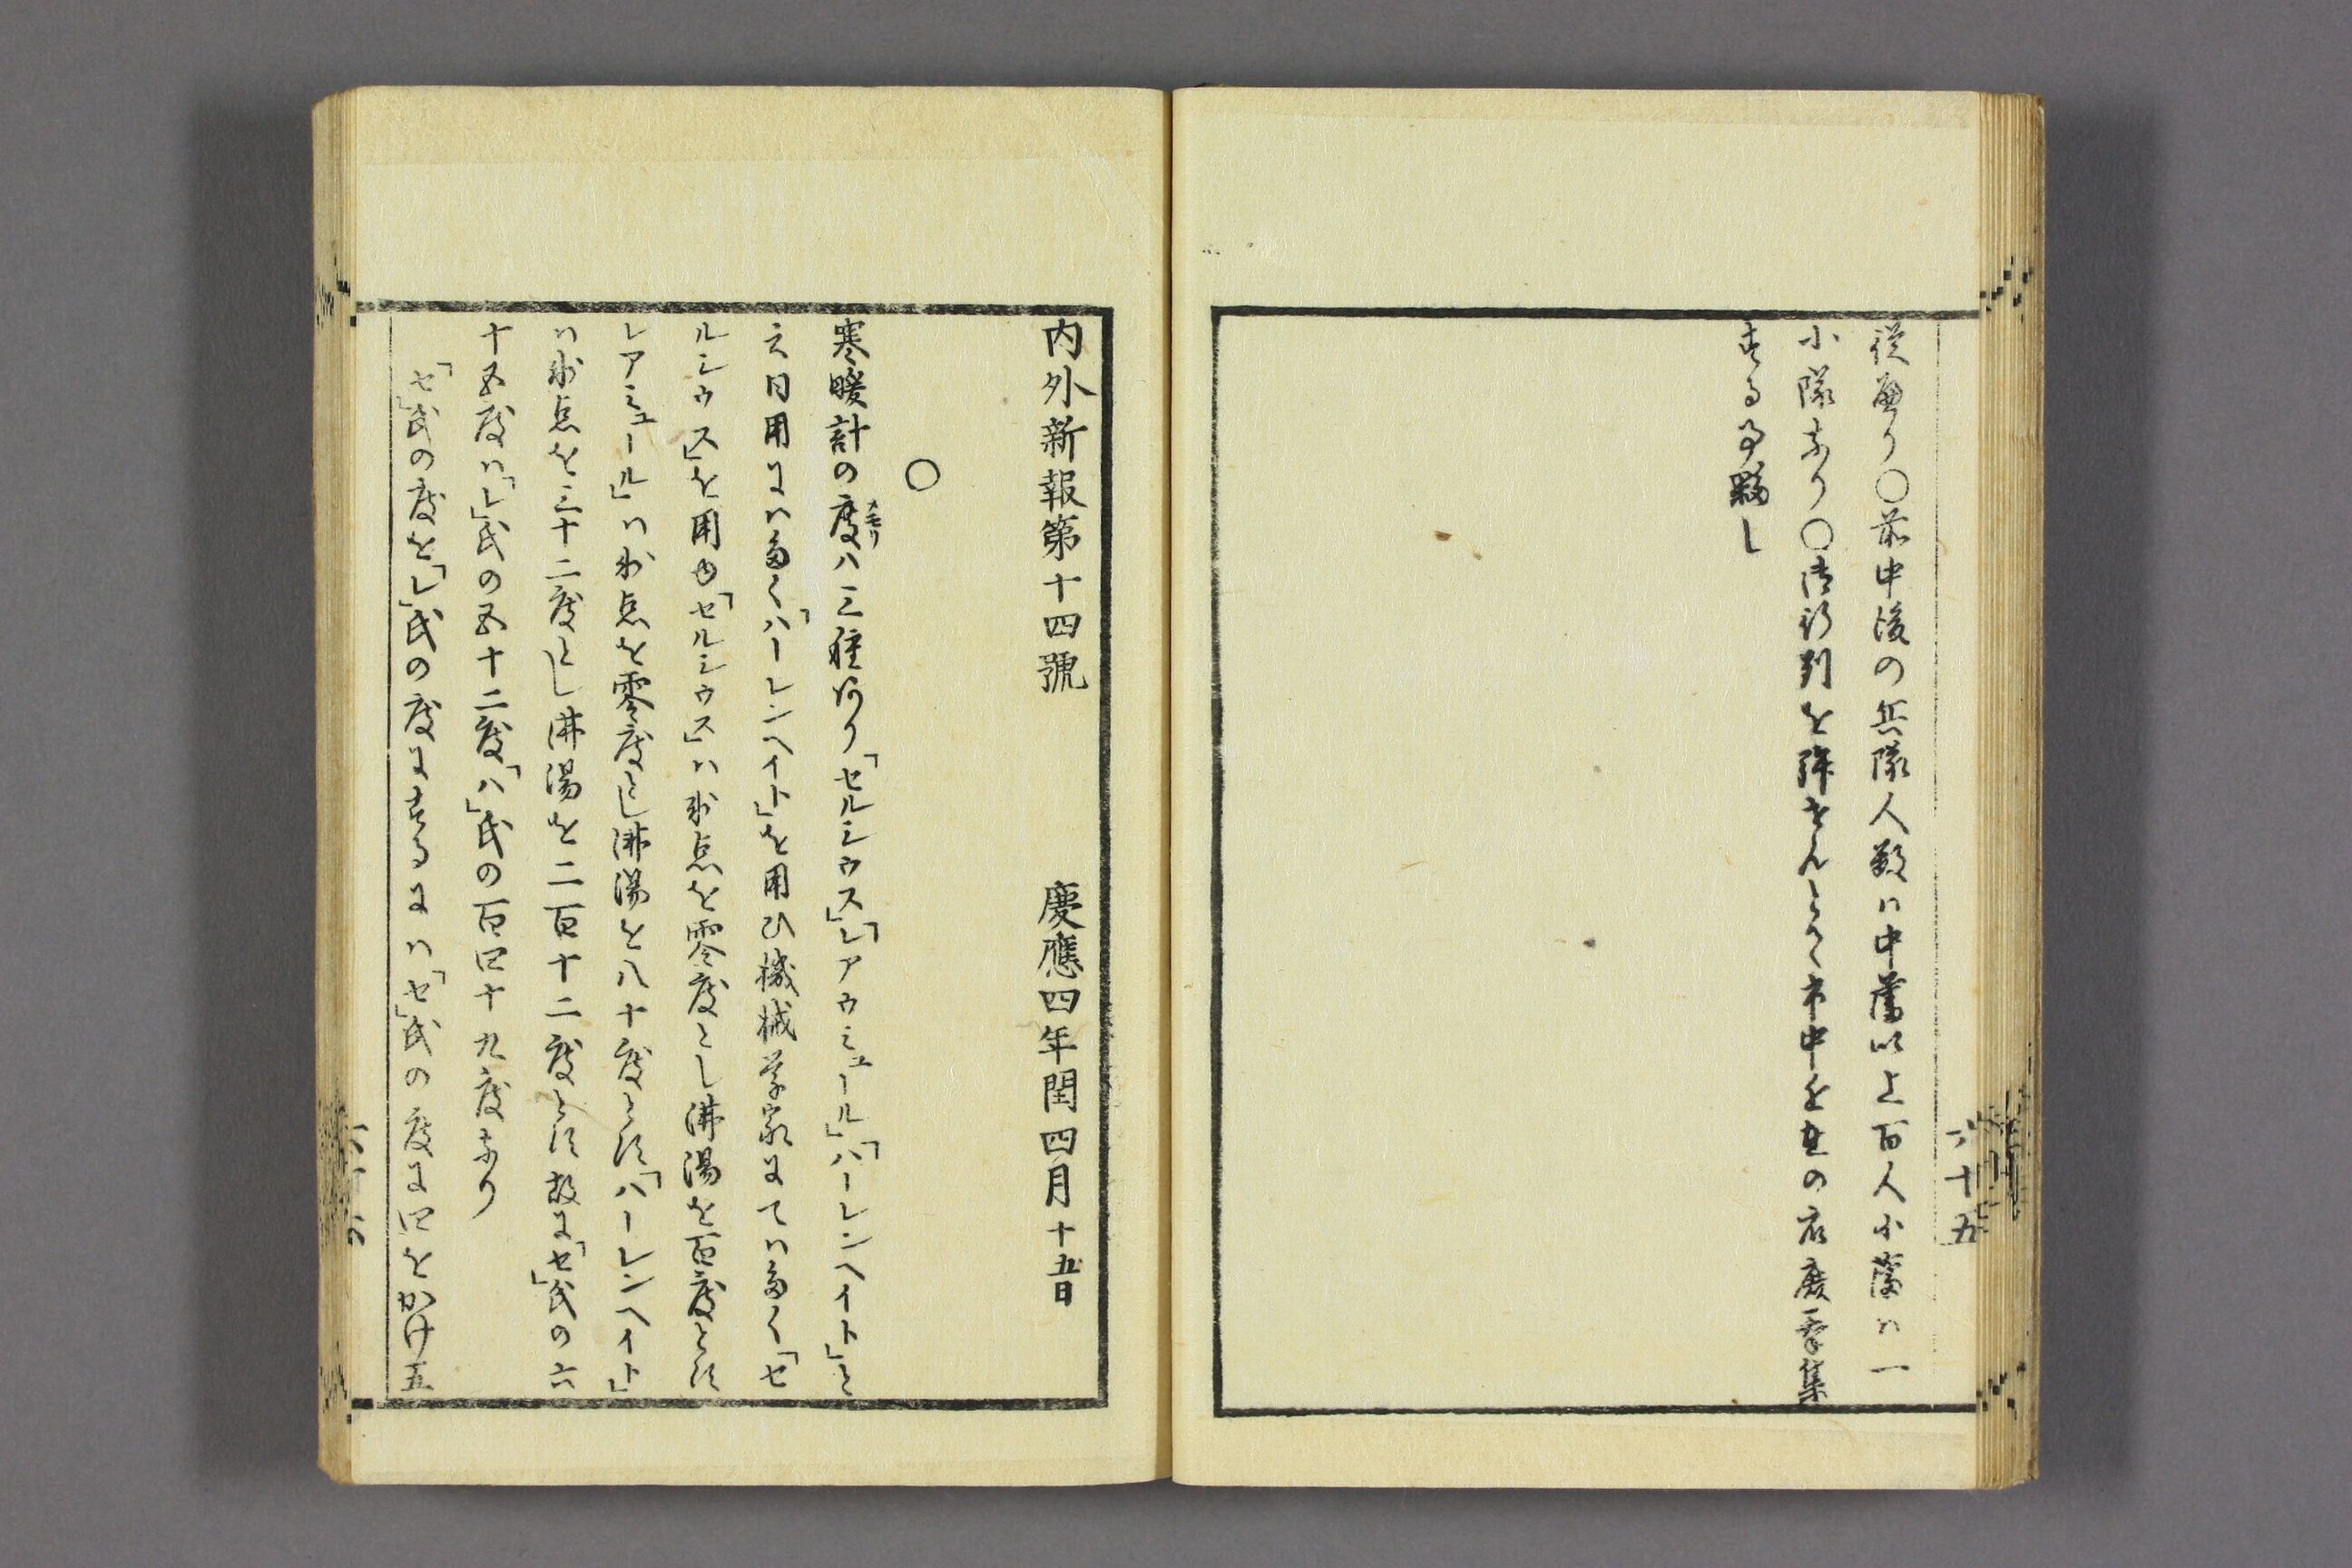 従顔り〇前中後の兵隊人数ハ中藩以上百人小藩ハ一
小隊なり〇御行列を拝せんとて市中近在の衣廣羣集
する事夥し
六十五
内外新報第十四號 慶應四年閏四月十五日
〇
寒暖計の度ハ三種あり「セルシウス」「レアウミュール」「ハーレンヘイト」と
メモリ
云日用にハ多く「ハーレンヘイト」を用ひ機械学家にてハ多く「セ
ルシウス」を用ゆ「セルシウス」ハ氷点を零度とし沸湯を百度とす
レアミュール」ハ氷点を零度とし沸湯を八十度とす「ハーレンヘイト」
ハ氷点を三十二度とし沸湯を二百十二度とす故に「セ」氏の六
十五度ハ「レ」氏の五十二度「ハ」氏の百四十九度なり
「セ」氏の度を「レ」氏の度にするにハ「セ」氏の度に四をかけ五